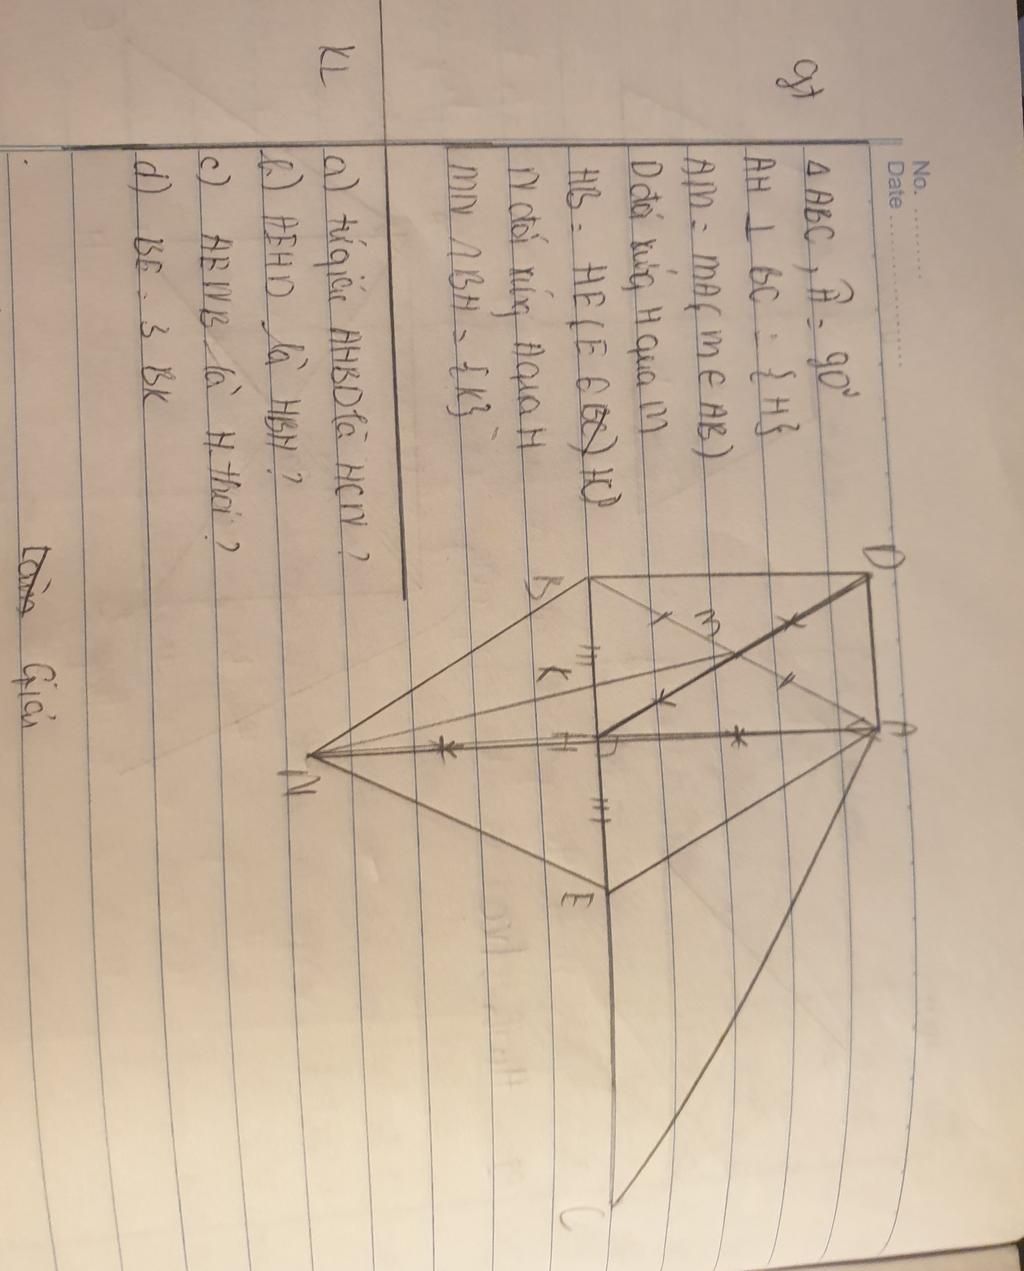 No. ............
Date ........................
gt
Δ ABC, Â = 90°
AH ⊥ BC = {H}
AM = MA( M ∈ AB)
D đối xứng H qua M
HB = HE ( E ∈ HC)
N đối xứng A qua H
MN ∩ BH = {K}
KL
a) tứ giác AHBD là HCN ?
b) AEHD là HBH ?
c) AENB là H.thoi ?
d) BE = 3 BK
Giải
D
A
M
B
K
H
E
C
N